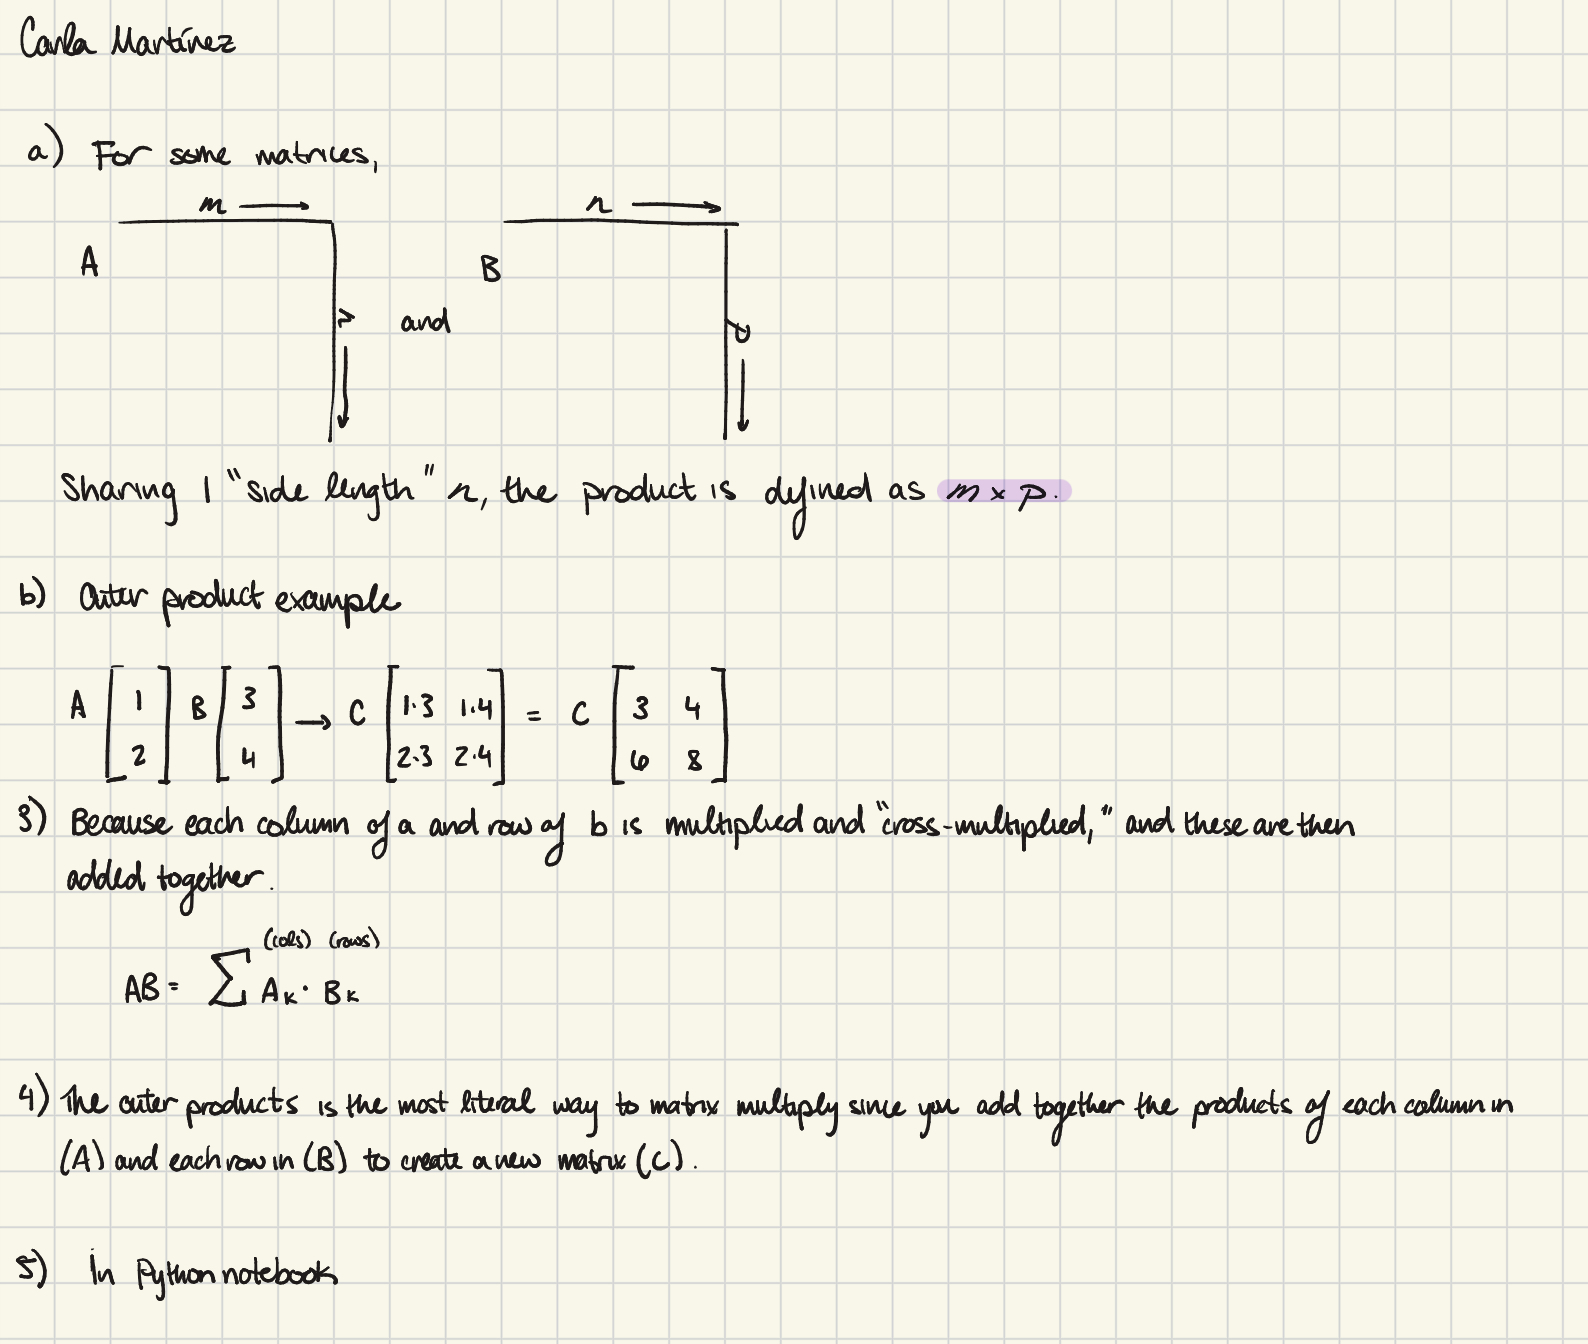 Carla Martínez
a) For some matrices,
m → n →
A B
n and p
Sharing 1 "side length" n, the product is defined as m × p.
b) Outer product example
A [1 2] B [3 4] → C [1·3 1·4 2·3 2·4] = C [3 4 6 8]
3) Because each column of a and row of b is multiplied and "cross-multiplied," and these are then
added together.
(cols) (rows)
AB = ∑ Aₖ · Bₖ
4) The outer products is the most literal way to matrix multiply since you add together the products of each column in
(A) and each row in (B) to create a new matrix (C).
5) In Python notebook